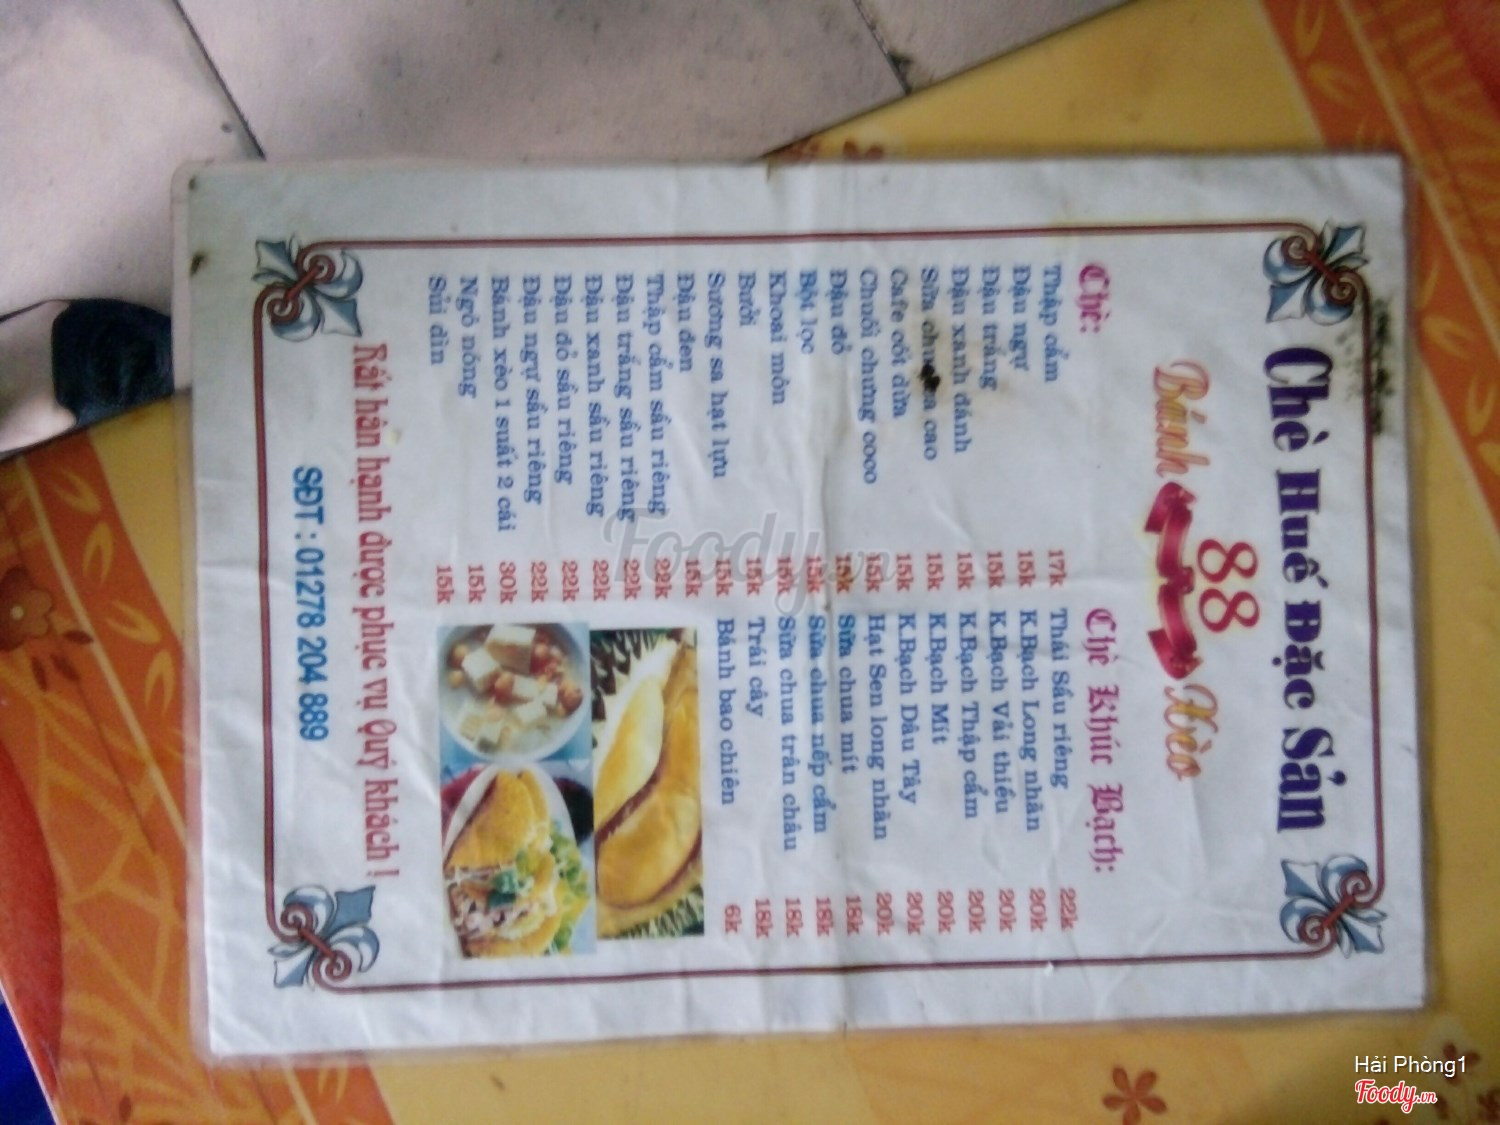 Chè Huế Đặc Sản
88
Bánh Xèo
Chè:
Thập cẩm 17k
Đậu ngự 15k
Đậu trắng 15k
Đậu xanh đánh 15k
Sữa cao 15k
Cafe cốt dừa 15k
Chuối chưng coco 15k
Đậu đỏ 15k
Bột lọc 15k
Khoai môn 15k
Bưởi 15k
Sương sa hạt lựu 15k
Đậu đen 15k
Thập cẩm sầu riêng 22k
Đậu trắng sầu riêng 22k
Đậu xanh sầu riêng 22k
Đậu đỏ sầu riêng 22k
Đậu ngự sầu riêng 22k
Bánh xèo 1 suất 2 cái 30k
Ngô nóng 15k
Sủi dìn 15k
Chè Khúc Bạch:
Thái Sầu riêng 22k
K.Bạch Long nhãn 20k
K.Bạch Vải thiều 20k
K.Bạch Thập cẩm 20k
K.Bạch Mít 20k
K.Bạch Dâu Tây 20k
Hạt Sen long nhãn 20k
Sữa chua mít 18k
Sữa chua nếp cẩm 18k
Sữa chua trân châu 18k
Trái cây 18k
Bánh bao chiên 6k
Rất hân hạnh được phục vụ Quý khách !
SĐT : 01278 204 889
Foody.vn
Hải Phòng1
Foody.vn